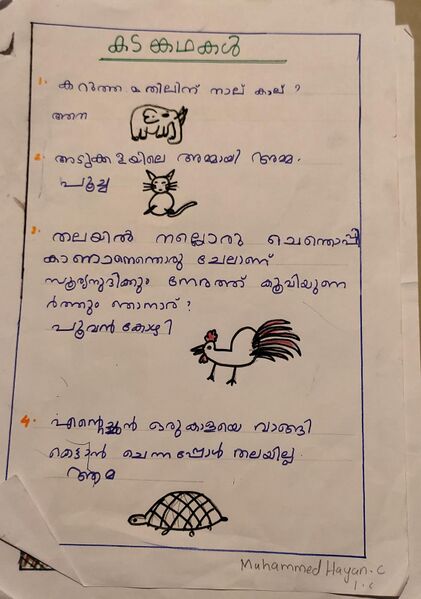 കടങ്കഥകൾ
1. കറുത്ത മതിലിന് നാല് കാല് ?
ആന
2. അടുക്കളയിലെ അമ്മായി അമ്മ.
പൂച്ച
3. തലയിൽ നല്ലൊരു ചെന്തൊപ്പി
കാണാനെന്തൊരു ചേലാണ്
സൂര്യനുദിക്കും നേരത്ത് കൂവിയുണ
ർത്തും ഞാനാര് ?
പൂവൻ കോഴി
4. എന്റെച്ഛൻ ഒരു കാളയെ വാങ്ങി
കെട്ടാൻ ചെന്നപ്പോൾ തലയില്ല
ആമ
Muhammed Hayan.C
1.C